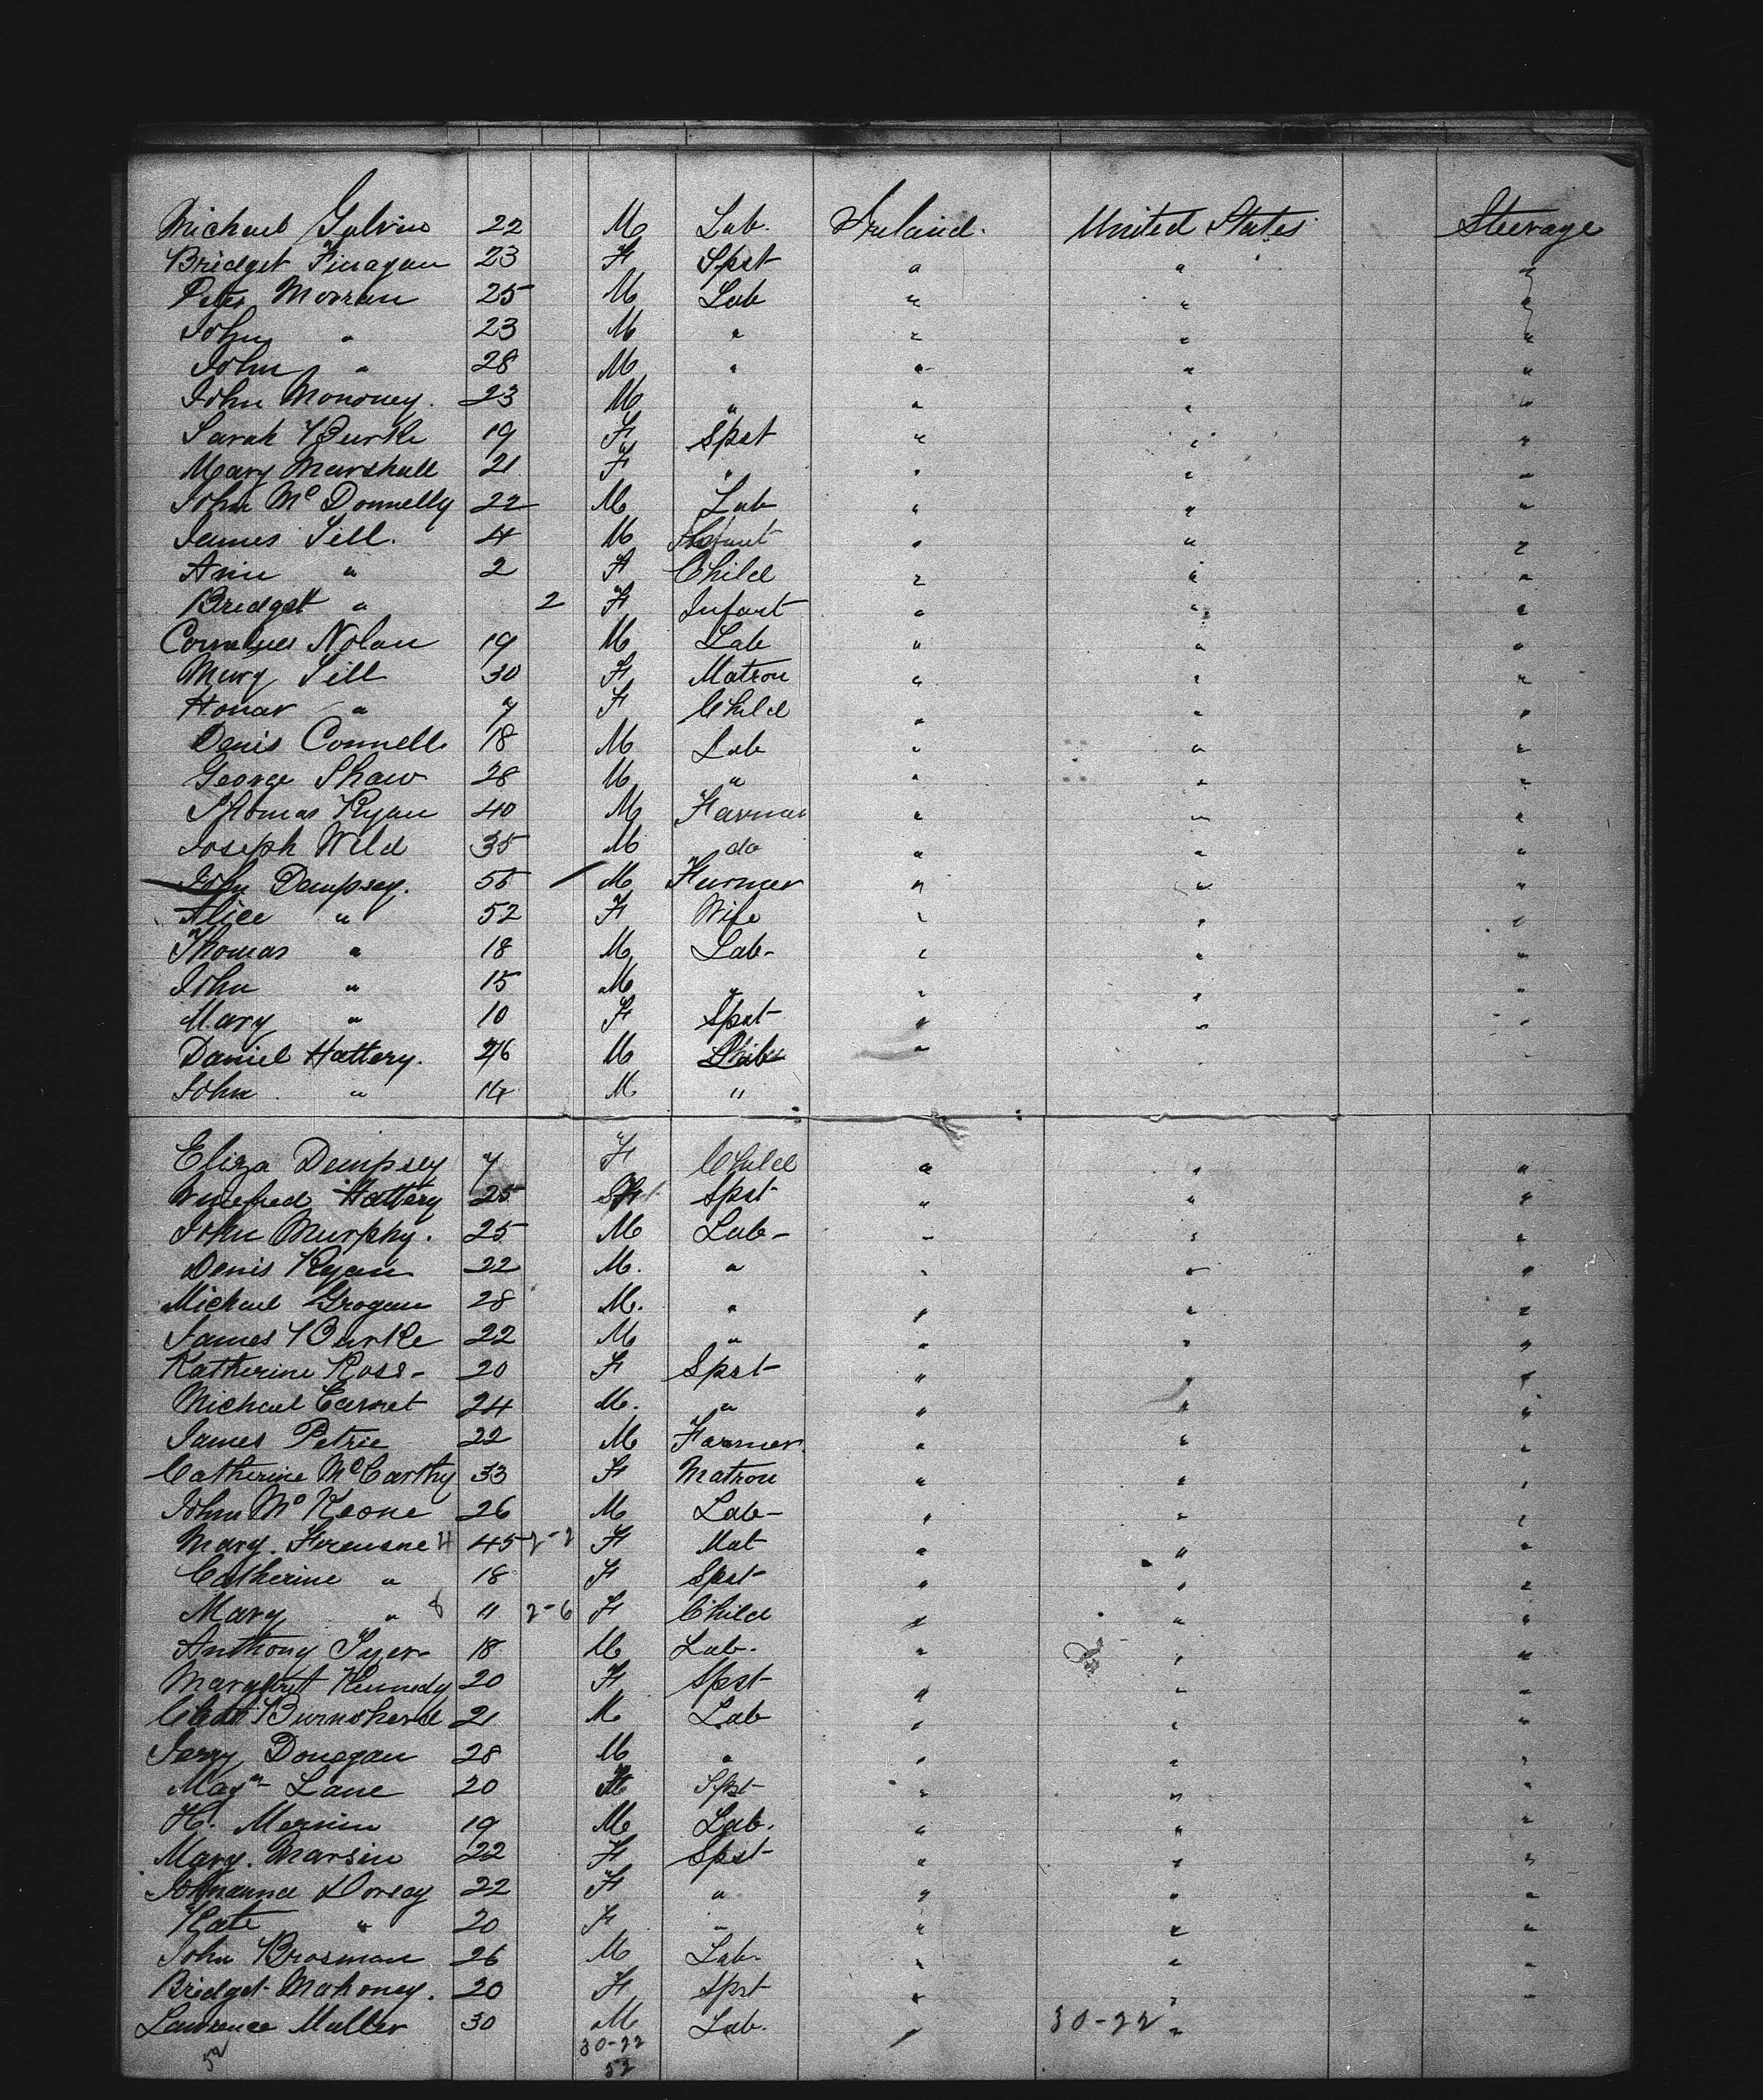 Michael Galvin 22 M Lab. Ireland. United States Steerage
Bridget Finagan 23 F Spst " " "
Peter Morran 25 M Lab " " "
John " 23 M " " " "
John " 28 M " " " "
John Mononey. 23 M " " " "
Sarah Burke 19 F Spst " " "
Mary Marshall 21 F " " " "
John Mc Donnelly 22 M Lab " " "
James Sill. 4 M " " "
Ann " 2 F Child " " "
Bridget " 2 F Infant " " "
Cornelius Nolan 19 M Lab " " "
Mary Sill 30 F Matron " " "
Honar " 7 F Child " " "
Denis Connell 18 M Lab " " "
George Shaw 28 M " " " "
Thomas Ryan 40 M Farmer " " "
Joseph Wild 35 M do " " "
John Dempsey. 55 / M Farmer " " "
Alice " 52 F Wife " " "
Thomas " 18 M Lab- " " "
John " 15 M " " " "
Mary " 10 F Spst " " "
Daniel Hattery. 26 M "
John " 14 M "
Eliza Dempsey 7 F Child " " "
Winefred Hattery 25 F Spst " " "
John Murphy. 25 M Lab- " " "
Denis Ryan 22 M. " " " "
Michael Grogan 28 M. " " " "
James Burke 22 M " " " "
Katherine Ross- 20 F Spst " " "
Michael 24 M. " " " "
James Petrie 22 M Farmer " " "
Catherine McCarthy 33 F Matron " " "
John Mc Keone 26 M Lab- " " "
Mary. 4 45 2-2 F Mat " " "
Catherine " 18 F Spst " " "
Mary " 8 11 2-6 F Child " " "
Anthony Tyer 18 M Lab. " " "
Margaret Kennedy 20 F Spst " " "
21 M Lab " " "
Jerry Donegan 28 M " " " "
Lane 20 F Spst " " "
H. 19 M Lab. " " "
Mary. Marsin 22 F Spst " " "
Johnanna Dorsay 22 F " " " "
Kate " 20 F " " " "
John Brosman 26 M Lab " " "
Bridget Mahoney. 20 F Spst " " "
Lawrence Muller 30 M Lab. " 30-22 "
52 30-22
52